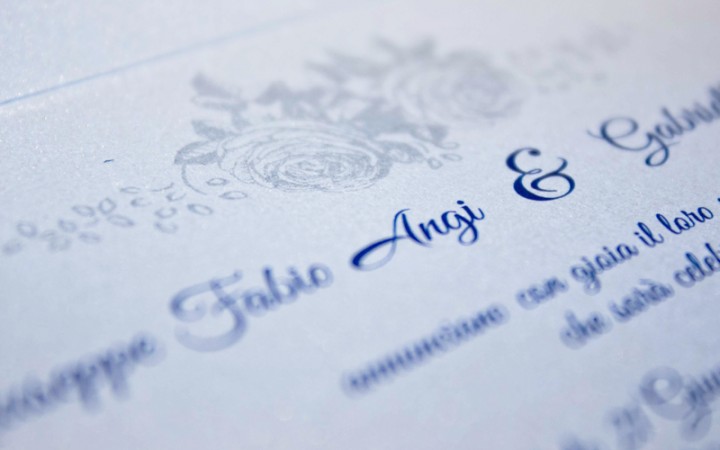 Giuseppe Fabio Angi & Gabriel
annunciano con gioia il loro
che sarà celeb